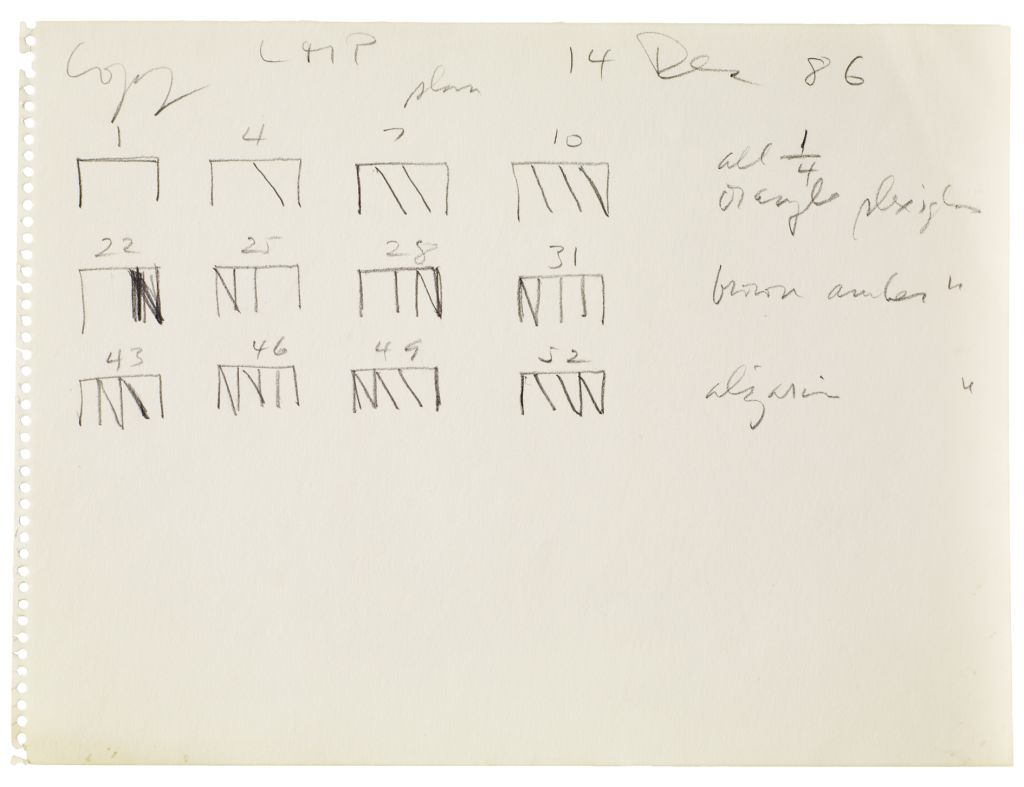 Copy LMP 14 Dec 86
plan
1 4 7 10
all 1/4
orange plexiglas
22 25 28 31
brown amber "
43 46 49 52
alizarin "